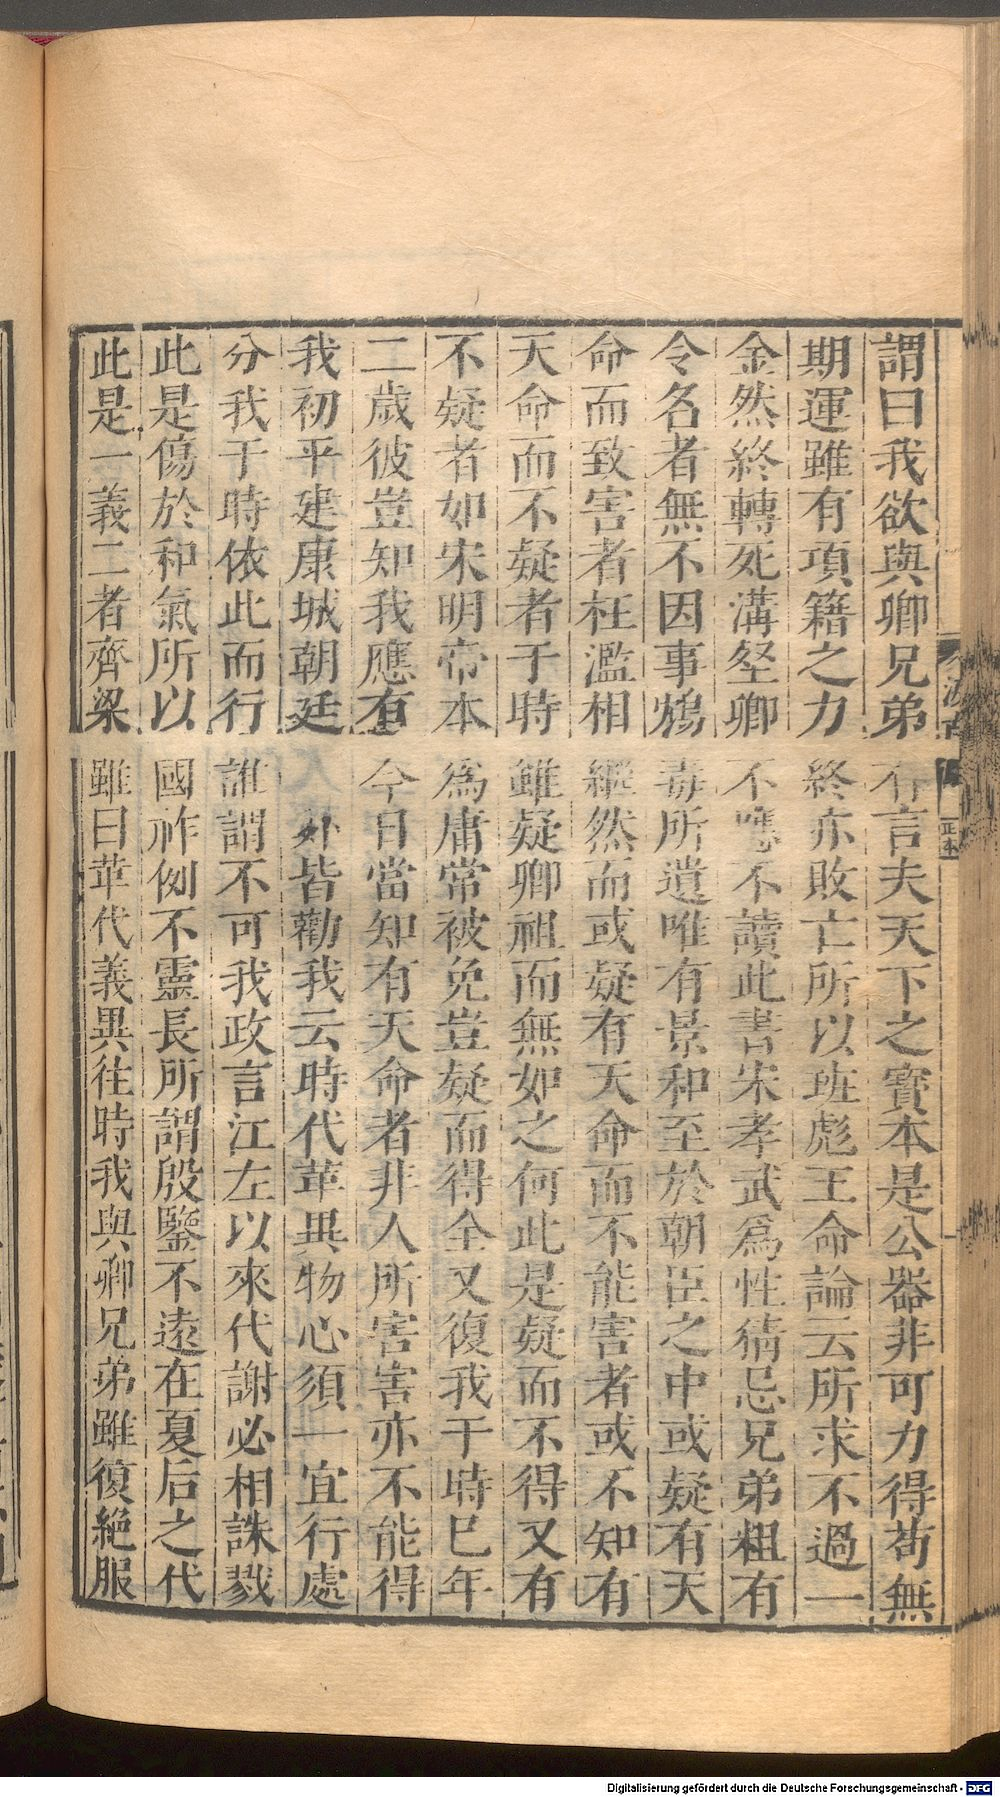 謂曰我欲與卿兄弟有言夫天下之寶本是公器非可力得苟無
期運雖有項籍之力終亦敗亡所以班彪王命論云所求不過一
金然終轉死溝壑卿不應不讀此書宋孝武爲性猜忌兄弟粗有
令名者無不因事鴆毒所遺唯有景和至於朝臣之中或疑有天
命而致害者枉濫相繼然而或疑有天命而不能害者或不知有
天命而不疑者于時雖疑卿祖而無如之何此是疑而不得又有
不疑者如宋明帝本爲庸常被免豈疑而得全又復我于時已年
二歲彼豈知我應有今日當知有天命者非人所害害亦不能得
我初平建康城朝廷外皆勸我云時代革異物心須一宜行處
分我于時依此而行誰謂不可我政言江左以來代謝必相誅戮
此是傷於和氣所以國祚例不靈長所謂殷鑒不遠在夏后之代
此是一義二者齊梁雖曰革代義異往時我與卿兄弟雖復絕服
Digitalisierung gefördert durch die Deutsche Forschungsgemeinschaft - DFG